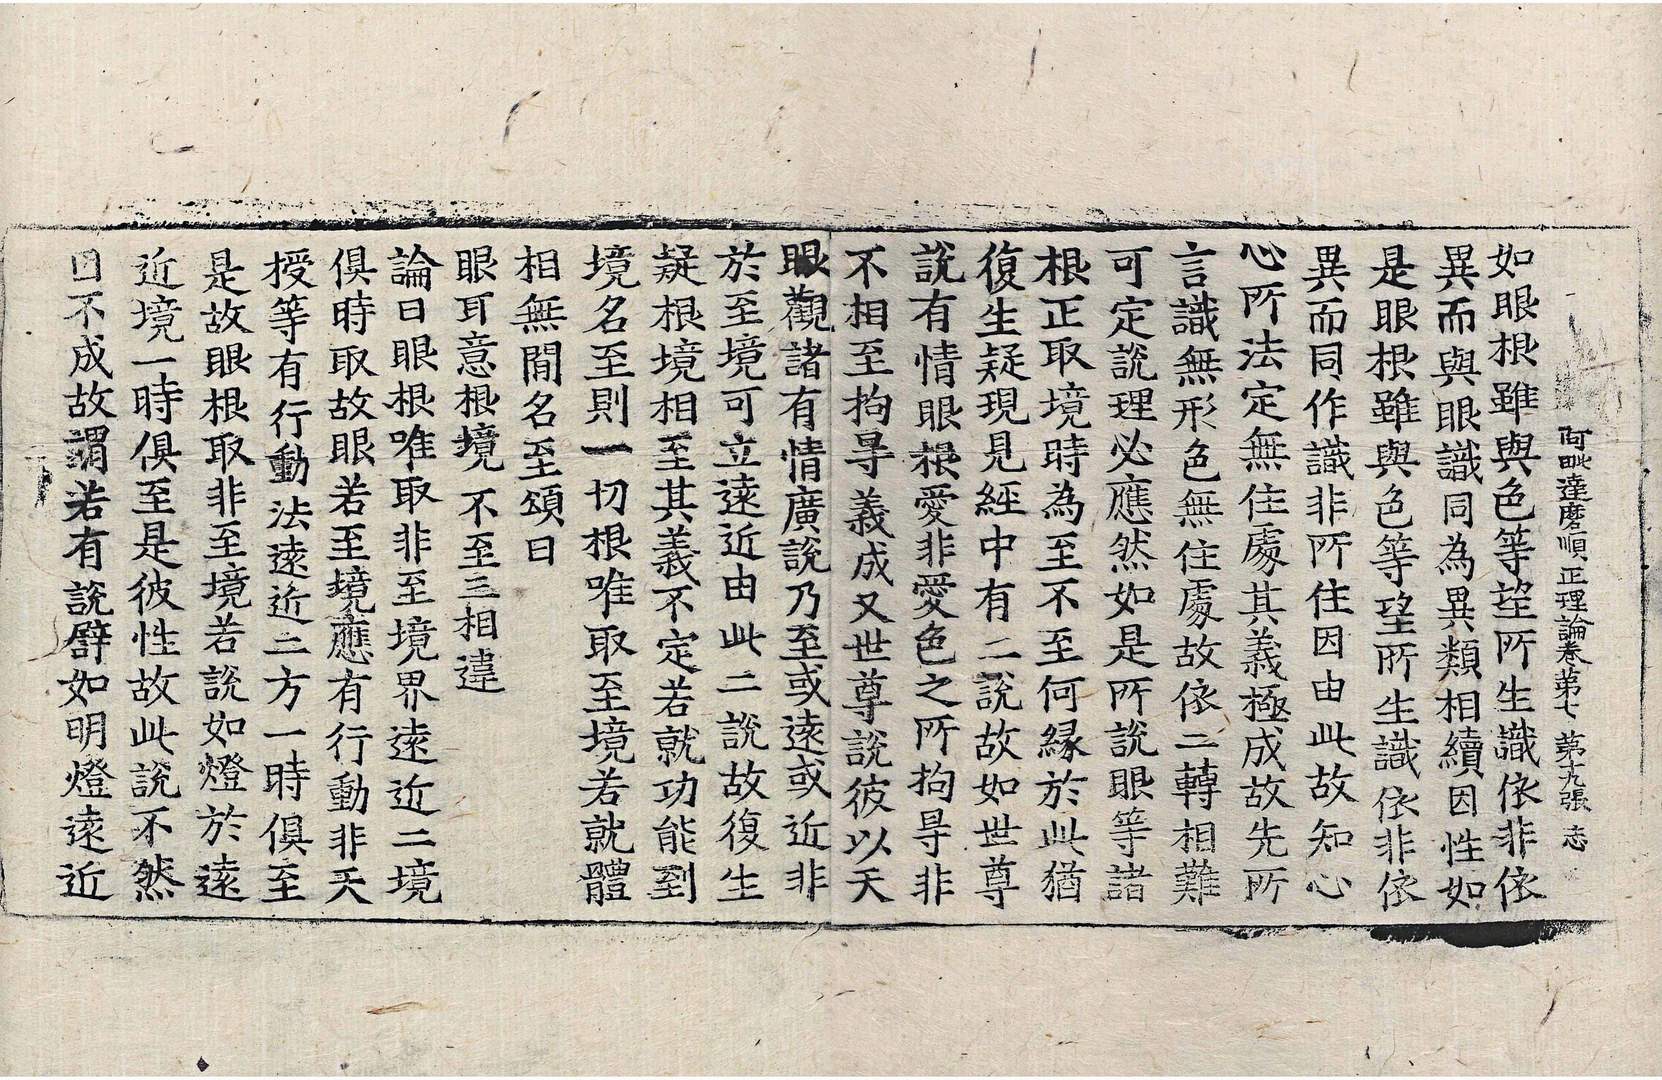 阿毗達磨順正理論卷第七 第九張 志
如眼根雖與色等望所生識依非依
異而與眼識同為異類相續因性如
是眼根雖與色等望所生識依非依
異而同作識非所住因由此故知心
心所法定無住處其義極成故先所
言識無形色無住處故依二轉相難
可定說理必應然如是所說眼等諸
根正取境時為至不至何緣於此猶
復生疑現見經中有二說故如世尊
說有情眼根愛非愛色之所拘㝵非
不相至拘㝵義成又世尊說彼以天
眼觀諸有情廣說乃至或遠或近非
於至境可立遠近由此二說故復生
疑根境相至其義不定若就功能到
境名至則一切根唯取至境若就體
相無間名至頌曰
眼耳意根境 不至三相違
論曰眼根唯取非至境界遠近二境
俱時取故眼若至境應有行動非天
授等有行動法遠近二方一時俱至
是故眼根取非至境若說如燈於遠
近境一時俱至是彼性故此說不然
因不成故謂若有說譬如明燈遠近